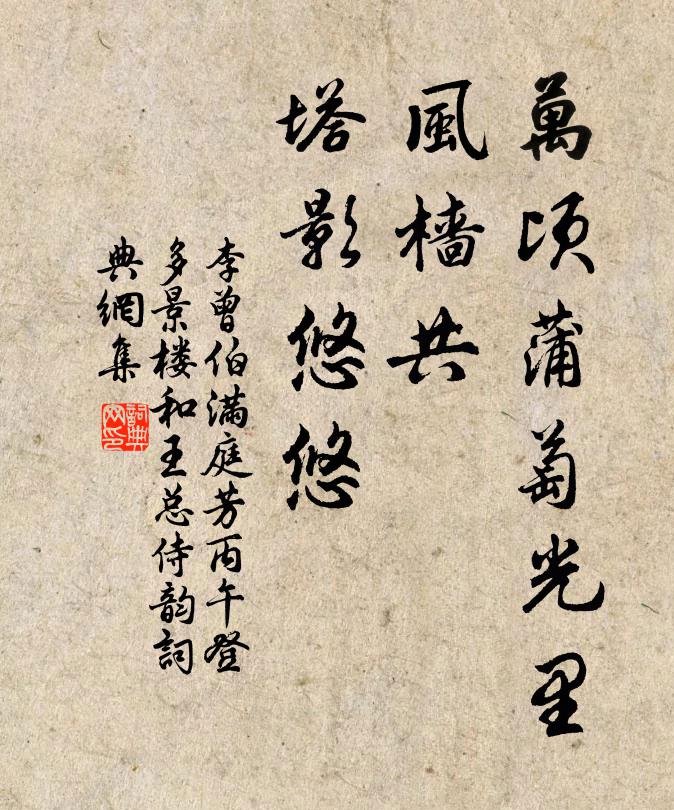 萬頃蒲萄光里
風檣共
塔影悠悠
李曾伯滿庭芳丙午登
多景楼和王总侍韵詞
典網集
詞典
网印